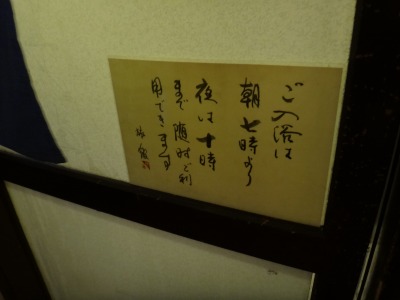 ご入浴は
朝七時より
夜は十時
まで随時ご利
用できます